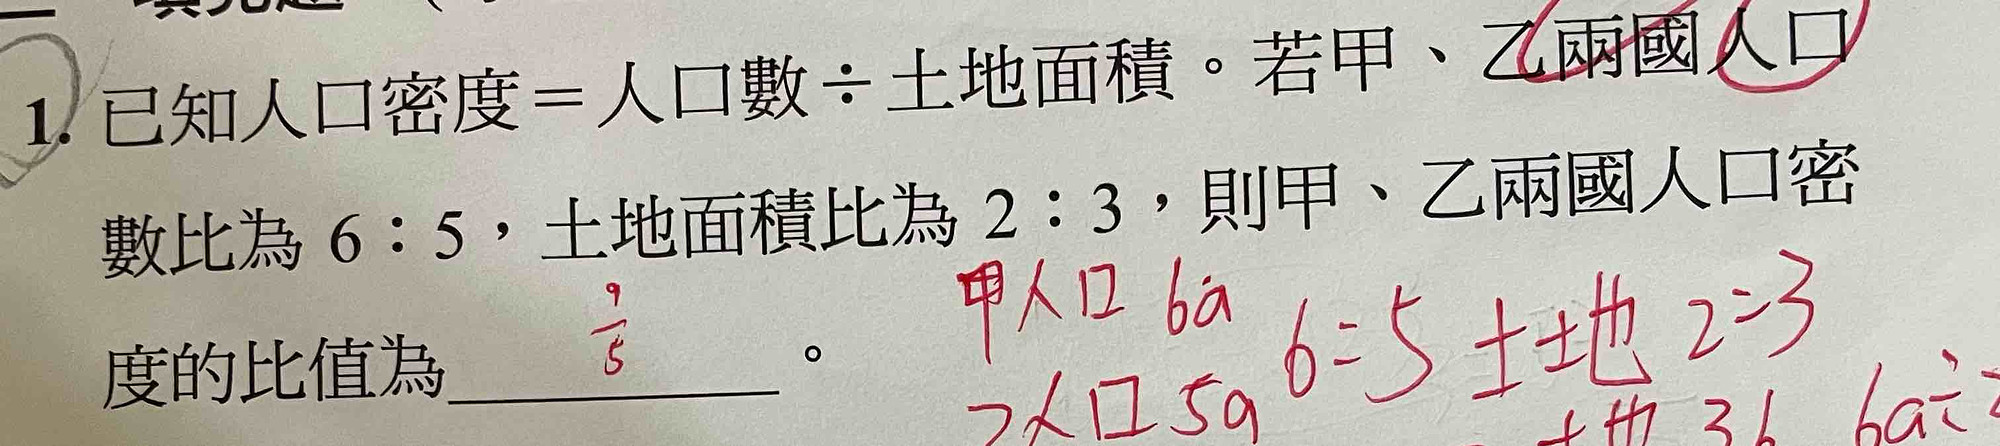 1. 已知人口密度＝人口數÷土地面積。若甲、乙兩國人口
數比為 6：5，土地面積比為 2：3，則甲、乙兩國人口密
度的比值為 9/5 。
甲人口 6a 6:5 土地 2:3
人口 5a 土地 3b 6a÷